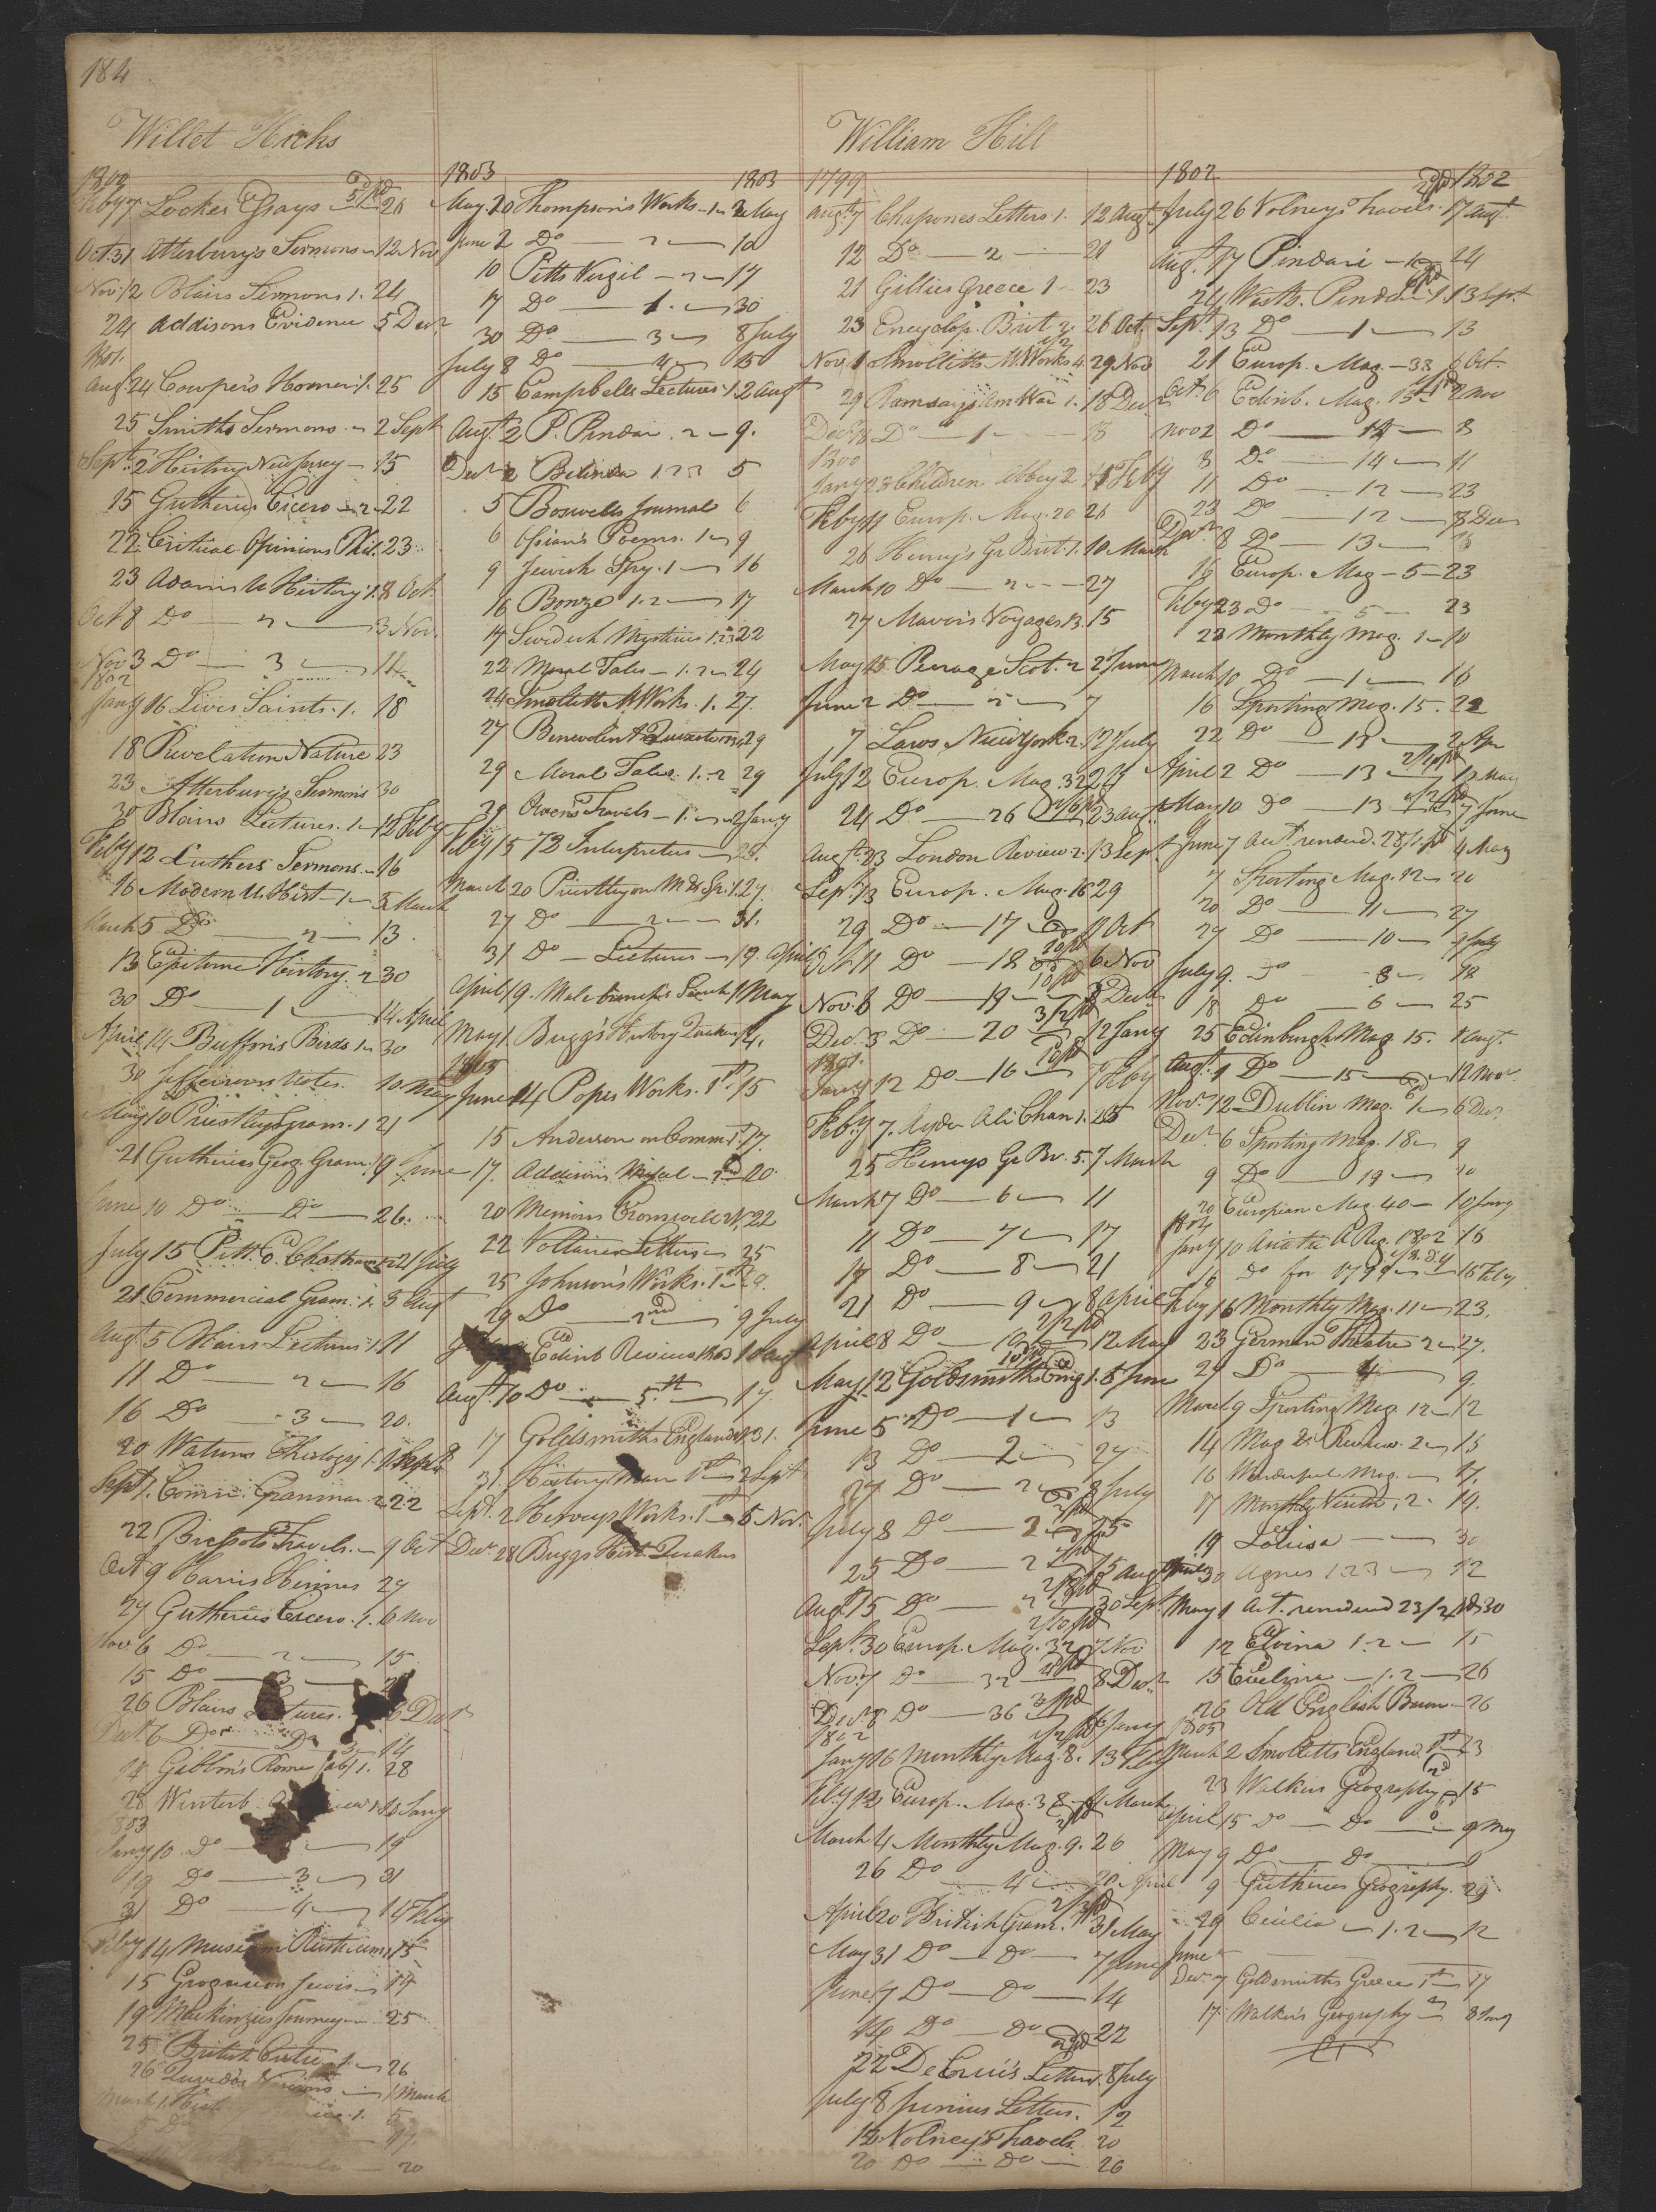 184
Willet Hicks
1800
Feby 7 Lockes Essays 5/pd 26
Oct 31 Atterbury's Sermons 12 Nov
Nov 12 Blairs Sermons 1. 24
24 Addisons Evidence 5 Decr
1801
Augt 24 Cowper's Homer 1. 25
25 Smiths Sermons 2 Sept
Sept 2 History New Jersey 15
15 Guthries Cicero 2 22
22 Critical Opinions Phil. 23
23 Adams U History 1. 8 Oct
Oct 8 Do 2 3 Nov
Nov 3 Do 3 11
1802
Jany 16 Lives Saints 1. 18
18 Revelation Nature 23
23 Atterbury's Sermons 30
30 Blairs Lectures 1 12 Feby
Feby 12 Luthers Sermons 16
16 Modern U. Hist 1 5 March
March 5 Do 2 13
13 Epitome History 2 30
30 Do 1 14 April
April 14 Buffon's Birds 1 30
30 Jeffersons Notes 10 May
May 10 Priestleys Gram. 1 21
21 Guthries Geog. Gram. 9 June
June 10 Do Do 26
July 15 Pitt E. Chatham 21 July
21 Commercial Gram. 1. 5 Augt
Augt 5 Blairs Lectures 1. 11
11 Do 2 16
16 Do 3 20
20 Watsons Theology 1. 1 Sept
Sept 1. Comm. Grammar 2 22
22 Brissots Travels 9 Oct
Oct 9 Harris Hermes 27
27 Guthries Cicero 1. 6 Nov
Nov 6 Do 2 15
15 Do 3
26 Blairs Lectures. 6 Decr
Decr 6 Do Do 3 14
14 Gibbon's Rome (ab) 1. 28
28 Winterb. Jany
1803
Jany 10 Do 19
19 Do 3 31
31 Do 4 14 Feby
Feby 14 Museum Rusticum 1 15
15 17
19 Mackinzies Journey 25
25 British Critic 1. 26
26 Quevedo's Visions 1 March
March 1. Hist 1.
5 Do
20
1803 1803
May 20 Thompson's Works 1 2 May
June 2 Do 2 10
10 Pitts Virgil 2 17
17 Do 1. 30
30 Do 3 8 July
July 8 Do 4 15
15 Campbells Lectures 1. 2 Augt
Augt 2 P. Pindar 2 9.
Decr 2 Belinda 1 2 3 5
5 Boswells Journal 6
6 Ossian's Poems. 1 9
9 Jewish Spy. 1 16
16 Bonze 1. 2 17
17 Swedish Mysteries 1. 2 3 22
22 Moral Tales 1. 2 24
24 Smolletts M Works. 1. 27.
27 Benevolent Quixote 29
29 Moral Tales. 1. 2 29
29 Owen's Travels 1. 2 Jany
Feby 15 73 Interpreter 20.
March 20 Priestley on M & Sp. 1. 27.
27 Do 2 31.
31 Do Lectures 19. April
April 19. Malebranch's Search 1 May
May 1 Bugg's History Quakers 14.
1805
June 14 Popes Works. 1st 15
15 Anderson on Comm. 1st 17.
17. Addisons 20.
20 Memoirs Cromwell 2d. 22
22 Voltaires Letters 25
25 Johnson's Works. 1st 29.
29 Do 2nd 9 July
Edinb Review 1803 10 Augt
Augt 10 Do 5th 17
17 Goldsmiths England 1. 31.
31. History Man 1st 2 Sept
Sept. 2 Herveys Works. 1st 5 Nov.
Decr 28 Buggs Hist. Quakers
William Hill
1799
Augt 7 Chapones Letters 1. 12 Augt
12 Do 2 21
21 Gillies Greece 1 23
23 Encyclop. Brit 2. 26 Oct.
Nov 1 Smolletts M. Works 4 29 Nov
29 Ramsays Am War 1. 18 Decr
Decr 18 Do 1 18
1800
Jany 23 Children Abbey 2 11 Feby
Feby 11 Europ. Mag. 20 26
26 Henry's Gr Brit 1. 10 March
March 10 Do 2 27
27 Mavor's Voyages 13. 15
May 15 Perage Scot. 2 2 June
June 2 Do 2 7
7 Laws New York 2. 12 July
July 12 Europ. Mag. 32 24
24 Do 26 2/6 pd 23 Augt
Augt 23 London Review 2. 13 Sept
Sept 13 Europ. Mag. 16 29
29 Do 17 11 Oct
Oct 11 Do 18 6 Nov
Nov. 6 Do 19 3 Decr
Decr 3 Do 20 3/2 pd 12 Jany
1801.
Jany 12 Do 16 7 Feby
Feby 7. Ayder Ali Chan 1. 25
25 Henrys Gr Br. 5. 7 March
March 7 Do 6 11
11 Do 7 17
17 Do 8 21
21 Do 9 8 April
April 8 Do 10 2/2 pd 12 May
May 12 Goldsmiths Eng 1. 5 June
June 5 Do 1 13
13 Do 2 27
27 Do 2 8 July
July 8 Do 2 25
25 Do 2 15 Augt
Augt 15 Do 2 30 Sept
Sept. 30 Europ. Mag. 32 7 Nov
Nov. 7 Do 32 8 Decr
Decr 8 Do 36 Jany
1802
Jany 16 Monthly Mag. 8. 13 Feby
Feby 13 Europ. Mag. 38 4 March
March 4 Monthly Mag. 9. 26
26 Do 4 20 April
April 20 British Gram. 31 May
May 31 Do Do 7 June
June 7 Do Do 14
14 Do Do 22
22 De Crui's Letters 8 July
July 8 Junius Letters. 12
12 Volney's Travels 20
20 Do Do 26
1802 1802
July 26 Volneys Travels. 17 Augt
Augt 17 Pindar 24
24 Wests. Pindar 1 13 Sept.
Sept. 13 Do 1 13
21 Europ. Mag. 33 6 Oct.
Oct. 6 Edinb. Mag. 15 2 Nov
Nov 2 Do 14 8
8 Do 14 11
11 Do 12 23
23 Do 12 8 Decr
Decr 8 Do 13 16
16 Europ. Mag 5 23
Feby 23 Do 5 23
23 Monthly Mag. 1 10
March 10 Do 1 16
16 Sporting Mag. 15. 22
22 Do 13 2 Apr
April 2 Do 13 10 May
May 10 Do 13 7 June
June 7 Act rendered. 28/1 pd 4 May
7 Sporting Mag. 12 20
20 Do 11 27
27 Do 10 9 July
July 9. Do 8 18
18 Do 6 25
25 Edinburgh Mag. 15. 1 Augt
Augt 1 Do 15 12 Nov
Nov. 12 Dublin Mag. 1 6 Decr
Decr 6 Sporting Mag. 18 9
9 Do 19 20
20 European Mag. 40 10 Jany
1804
Jany 10 Asiatic A Reg. 1802 16
16 Do for 1799 16 Feby
Feby 16 Monthly Mag. 11 23.
23 German Theatre 2 27.
27 Do 4 9.
March 9 Sporting Mag. 12 12
14 Mag & Review. 2 15
16 Wonderful Mag. 17.
17 Monthly Visitor, 2. 19.
19 Louisa 30
April 30 Agnes 1 2 3 12
May 1 Act. rendered 23/2 pd 30
12 Elvina 1. 2 15
15 Eveline 1. 2 26
26 Old English Baron 26
1805
March 2 Smolletts England 1st 23
23 Walkers Geography 15
April 15 Do Do 9 May
May 9 Do Do 9
9 Guthries Geography. 29
29 Cecilia 1. 2 12
June
Decr 7 Goldsmiths Greece 1st 17
17 Walker's Geography 8 Jany